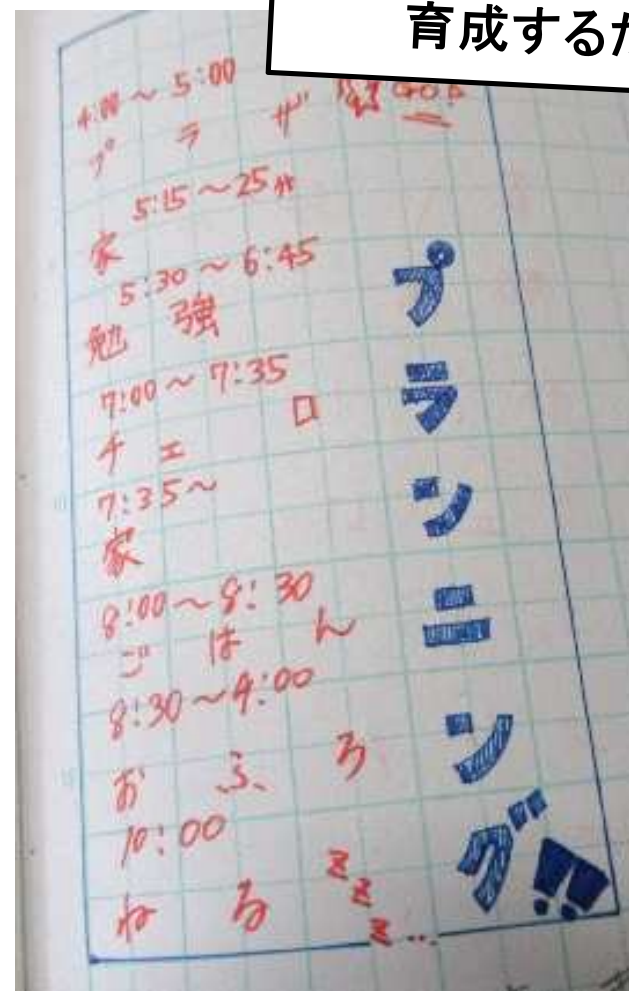 育成するた
4:00～5:00
プラザ GO!!
5:15～25分
家
5:30～6:45
勉強
7:00～7:35
チェロ
7:35～
家
8:00～8:30
ごはん
8:30～9:00
おふろ
10:00
ねる zzz...
プランニング!!